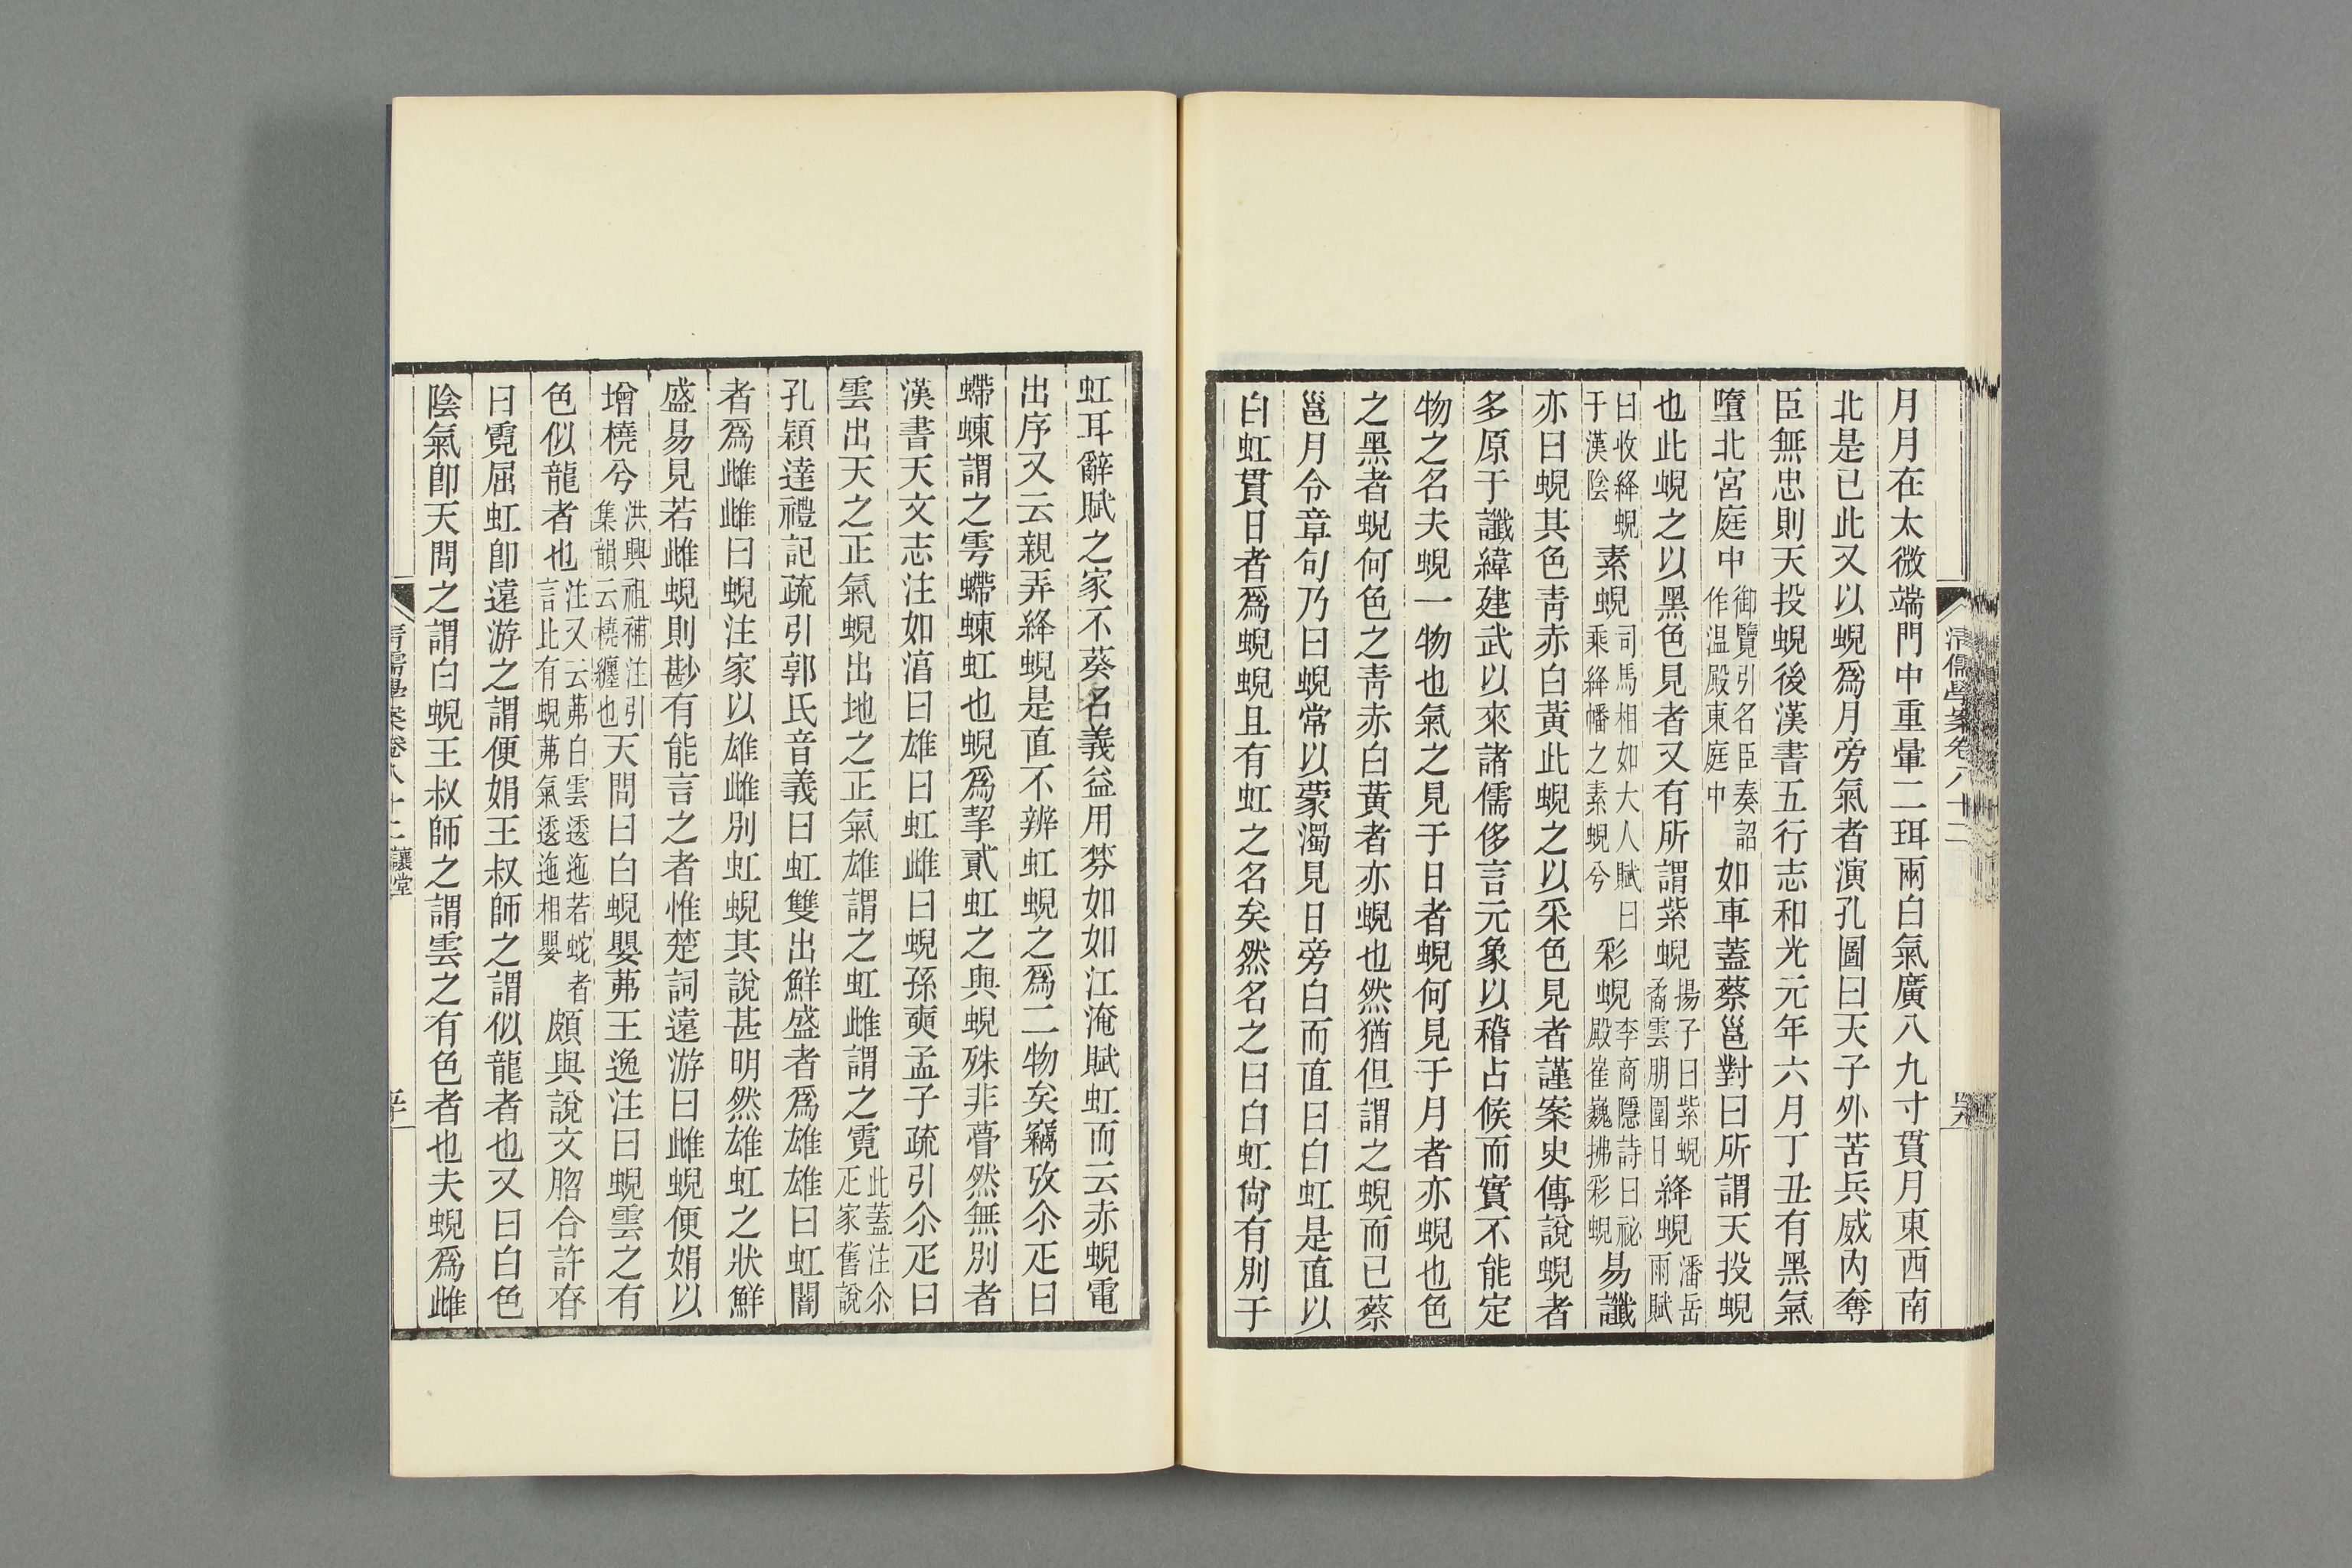 清儒學案卷八十二
月月在太微端門中重暈二珥兩白氣廣八九寸貫月東西南
北是已此又以蜺爲月旁氣者演孔圖曰天子外苦兵威內奪
臣無忠則天投蜺後漢書五行志和光元年六月丁丑有黑氣
墮北宮庭中御覽引名臣奏詔作温殿東庭中如車蓋蔡邕對曰所謂天投蜺
也此蜺之以黑色見者又有所謂紫蜺揚子曰紫蜺矞雲朋圍日絳蜺潘岳雨賦
曰收絳蜺于漢陰素蜺司馬相如大人賦曰乘絳幡之素蜺兮彩蜺李商隱詩曰祕殿崔巍拂彩蜺易讖
亦曰蜺其色靑赤白黃此蜺之以采色見者謹案史傳說蜺者
多原于讖緯建武以來諸儒侈言元象以稽占候而實不能定
物之名夫蜺一物也氣之見于日者蜺何見于月者亦蜺也色
之黑者蜺何色之靑赤白黃者亦蜺也然猶但謂之蜺而已蔡
邕月令章句乃曰蜺常以蒙濁見日旁白而直曰白虹是直以
白虹貫日者爲蜺蜺且有虹之名矣然名之曰白虹尙有別于
虹耳辭賦之家不葵名義益用棼如如江淹賦虹而云赤蜺電
出序又云親弄絳蜺是直不辨虹蜺之爲二物矣竊攷尒疋曰
螮蝀謂之雩螮蝀虹也蜺爲挈貳虹之與蜺殊非瞢然無別者
漢書天文志注如湻曰雄曰虹雌曰蜺孫奭孟子疏引尒疋曰
雲出天之正氣蜺出地之正氣雄謂之虹雌謂之霓此蓋注尒疋家舊說
孔穎達禮記疏引郭氏音義曰虹雙出鮮盛者爲雄雄曰虹闇
者爲雌雌曰蜺注家以雄雌別虹蜺其說甚明然雄虹之狀鮮
盛易見若雌蜺則尠有能言之者惟楚詞遠游曰雌蜺便娟以
增橈兮洪興祖補注引集韻云橈纏也天問曰白蜺嬰茀王逸注曰蜺雲之有
色似龍者也注又云茀白雲逶迤若蛇者言此有蜺茀氣逶迤相嬰頗與說文脗合許君
曰霓屈虹卽遠游之謂便娟王叔師之謂似龍者也又曰白色
陰氣卽天問之謂白蜺王叔師之謂雲之有色者也夫蜺爲雌